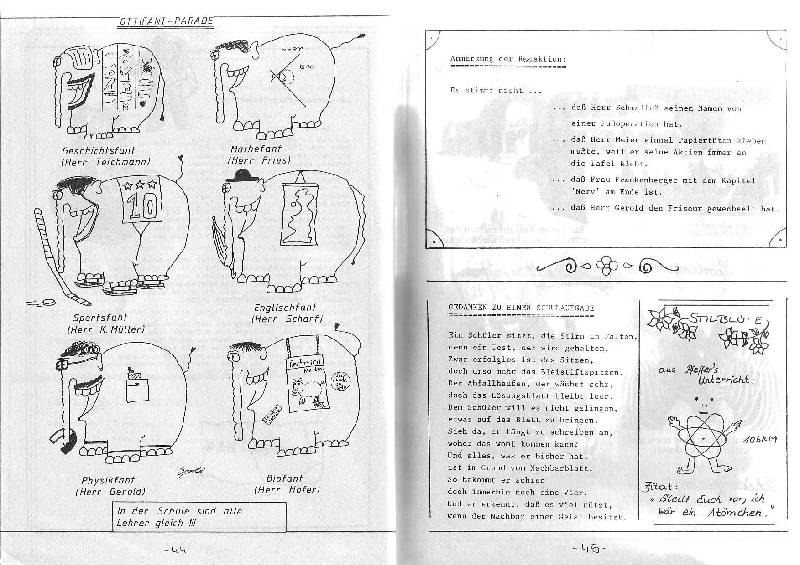 OTTIFANT-PARADE
Geschichtsfant
(Herr Teichmann)
Mathefant
(Herr Fries)
10
Sportsfant
(Herr K. Müller)
Englischfant
(Herr Scharf)
Physikfant
(Herr Gerold)
Biofant
(Herr Hofer)
In der Schule sind alle
Lehrer gleich !!!
- 44
Anmerkung der Redaktion:
Es stimmt nicht ...
... daß Herr seinen Namen von
einer hat.
... daß Herr Meier einmal Papiertüten kleben
mußte, weil er seine Aktien immer an
die Tafel klebt.
... daß Frau Frankenberger mit dem Kapitel
'Nerv' am Ende ist.
... daß Herr Gerold den Friseur gewechselt hat.
GEDANKEN ZU EINER SCHULAUFGABE
Ein Schüler sitzt, die Stirn in Falten,
denn ein Test, der wird gehalten.
Zwar erfolglos ist das Sitzen,
doch umso mehr das Bleistiftspitzen.
Der Abfallhaufen, der wächst sehr,
doch das Lösungsblatt bleibt leer.
Dem Schüler will es nicht gelingen,
etwas auf das Blatt zu bringen.
Sieh da, er fängt zu schreiben an,
woher das wohl kommen kann?
Und alles, was er bisher hat,
ist im Grund vom Nachbarblatt.
So bekommt er schier
doch immerhin noch eine Vier.
Und er erkennt, daß es viel nützt,
wenn der Nachbar einen Geist besitzt.
STILBLÜ E
aus
Unterricht:
Zitat:
"Stellt Euch vor, ich
wär ein Atömchen."
- 45 -